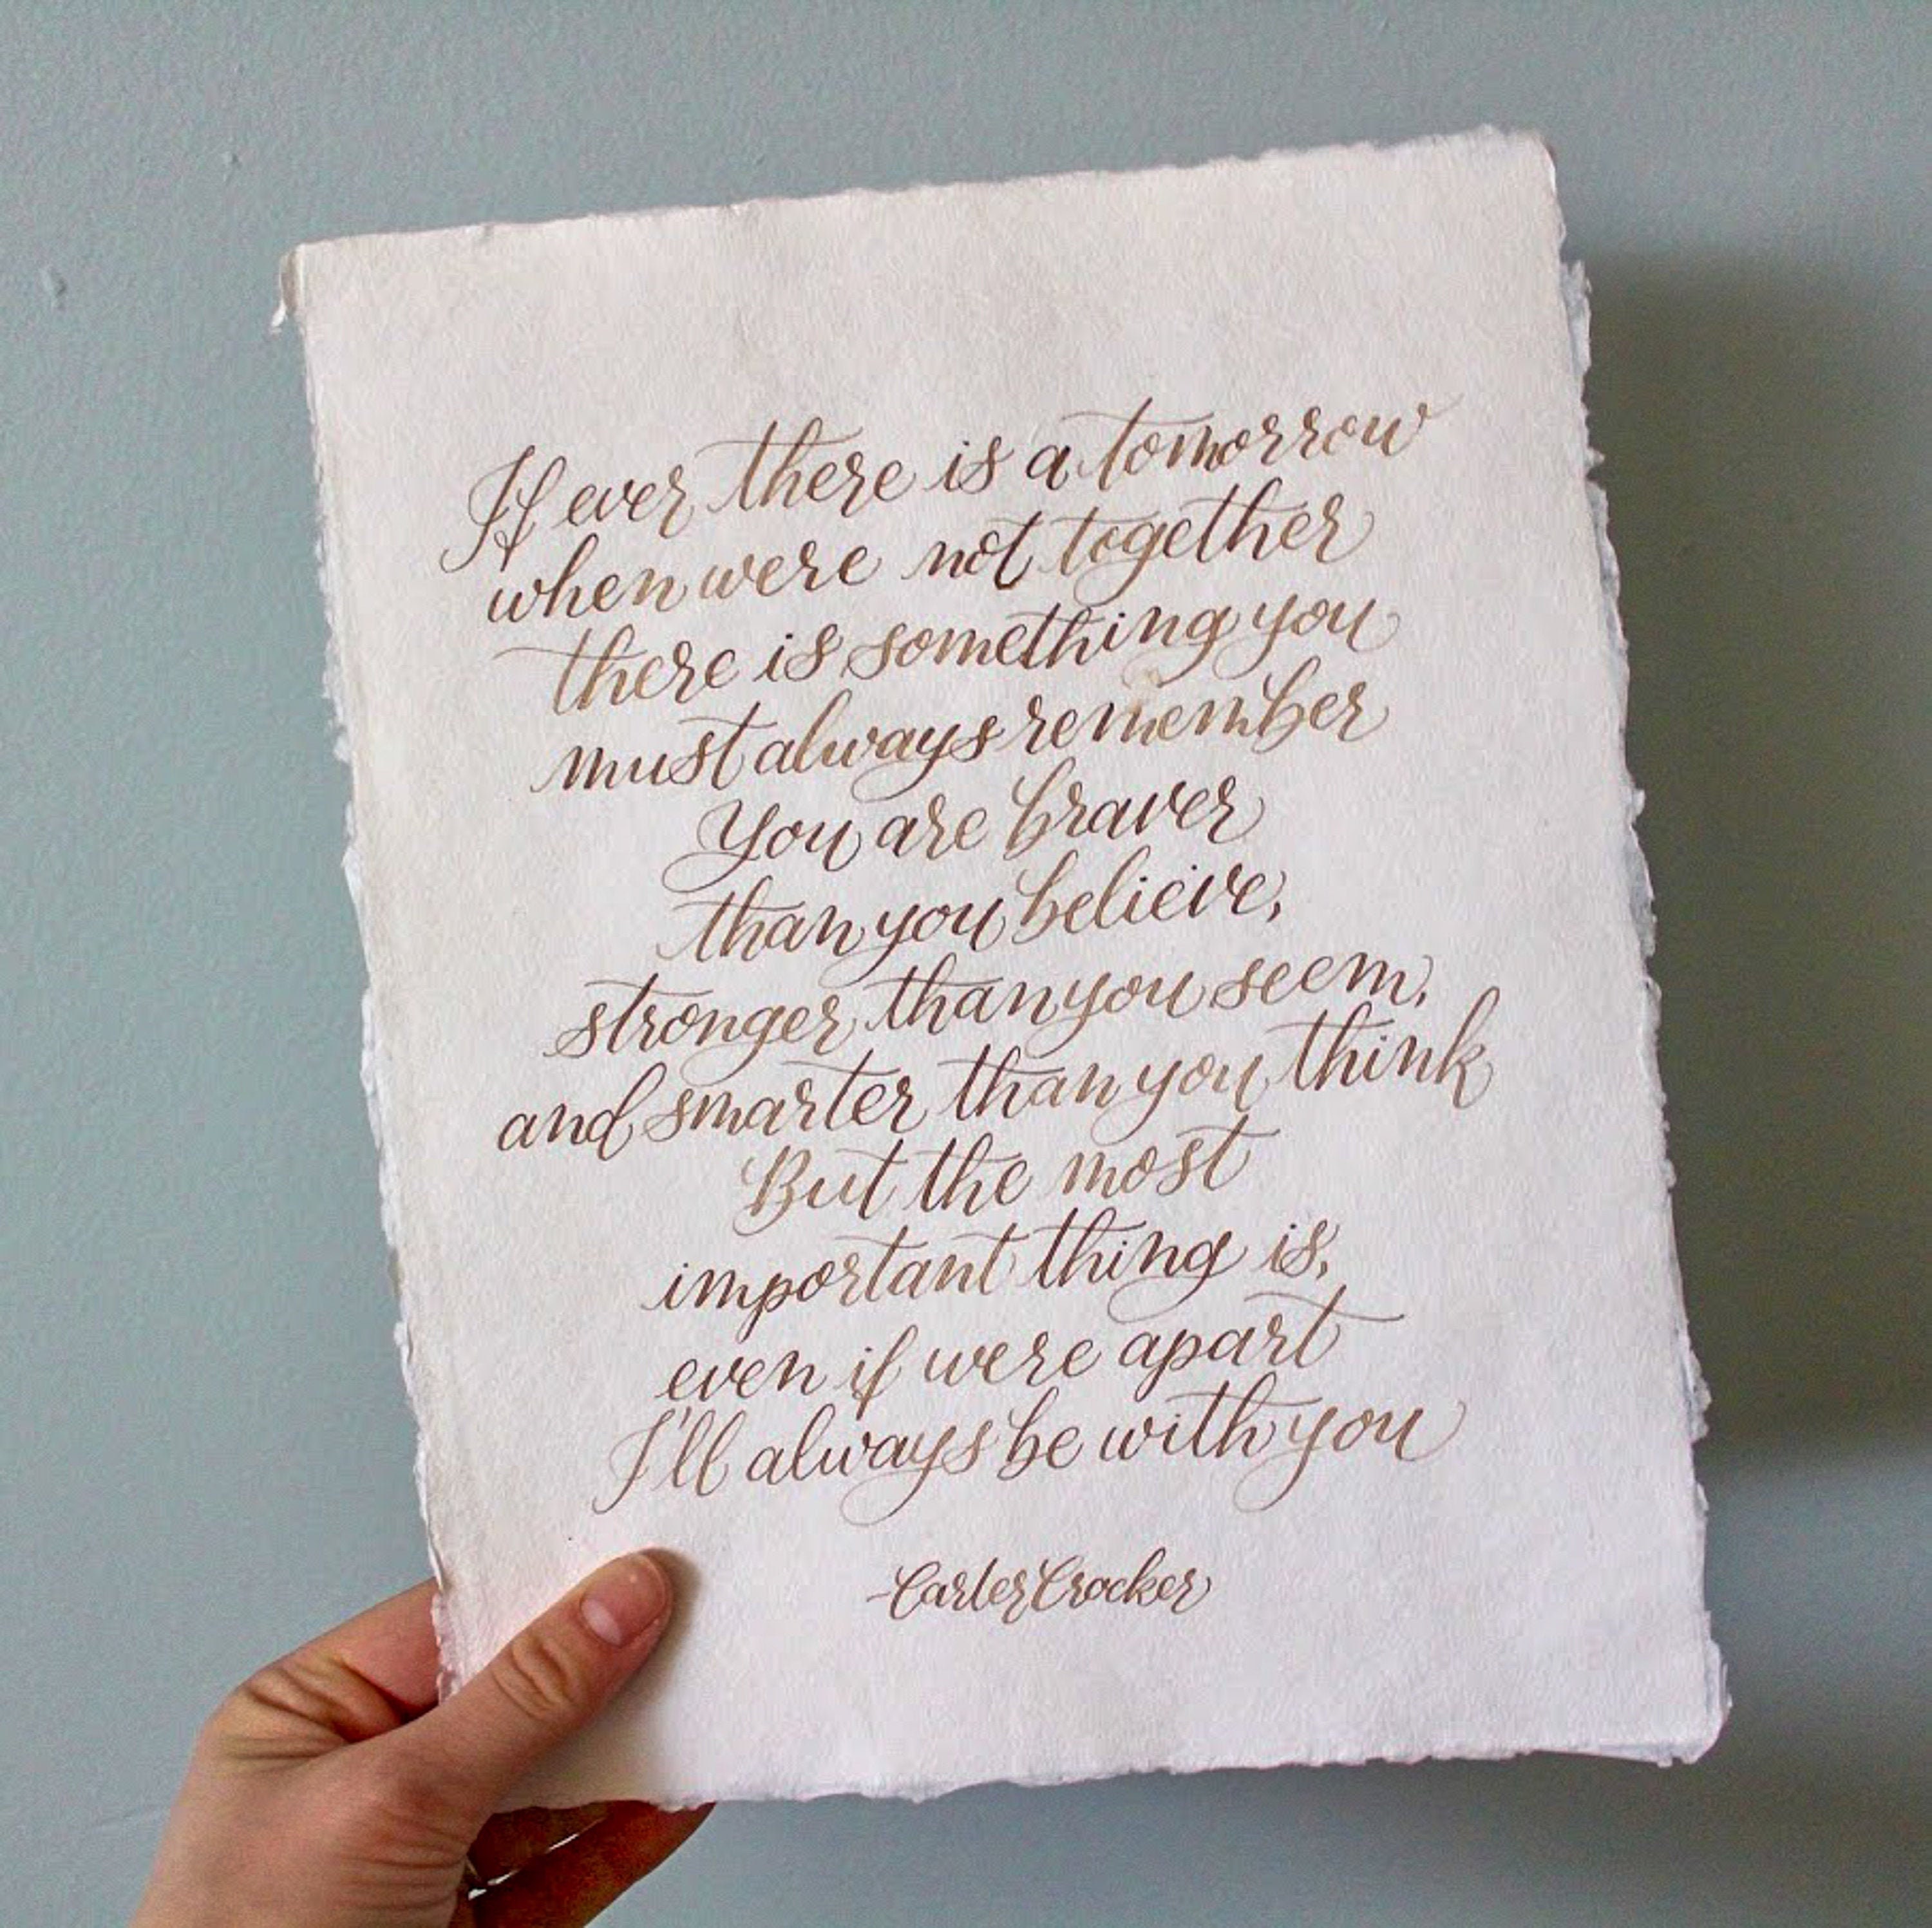 If ever there is a tomorrow
when were not together
there is something you
must always remember
You are braver
than you believe,
stronger than you seem,
and smarter than you think
But the most
important thing is,
even if were apart
I'll always be with you
-Carter Crocker